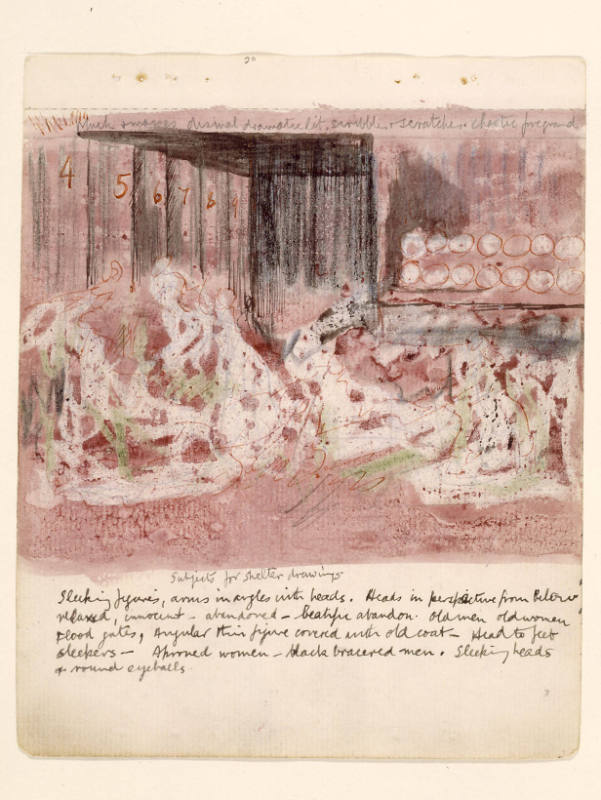 20
much masses dismal dramatic lit, scribbles & scratches & chaotic foreground
4 5 6 7 8 9
Subjects for shelter drawings
Sleeking figures, arms in angles with heads. Heads in perspective from Below
relaxed, innocent - abandoned - Beatific abandon. Old men old women
flood gates, Angular thin figure covered with old coat - Head to feet
sleepers - Aproned women - black bracered men. Sleeking heads
& round eyeballs